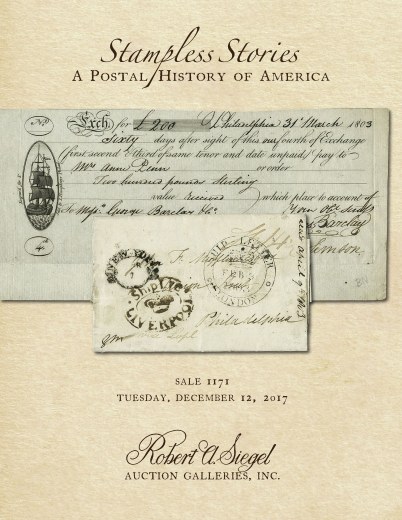 Stampless Stories
A Postal History of America
No.
Exch. for £200 Philadelphia 31st March 1803
Sixty days after sight of this our fourth of Exchange
(first second & third of same tenor and date unpaid) pay to
Mrs Ann Penn or order
Two hundred pounds Sterling
value received which place to account of
To Messrs George Barclay & Co.
Barclay
NEW YORK
SHIP LETTER
FEB
LONDON
SHIP
LIVERPOOL
Philadelphia
SALE 1171
TUESDAY, DECEMBER 12, 2017
Robert A. Siegel
AUCTION GALLERIES, INC.